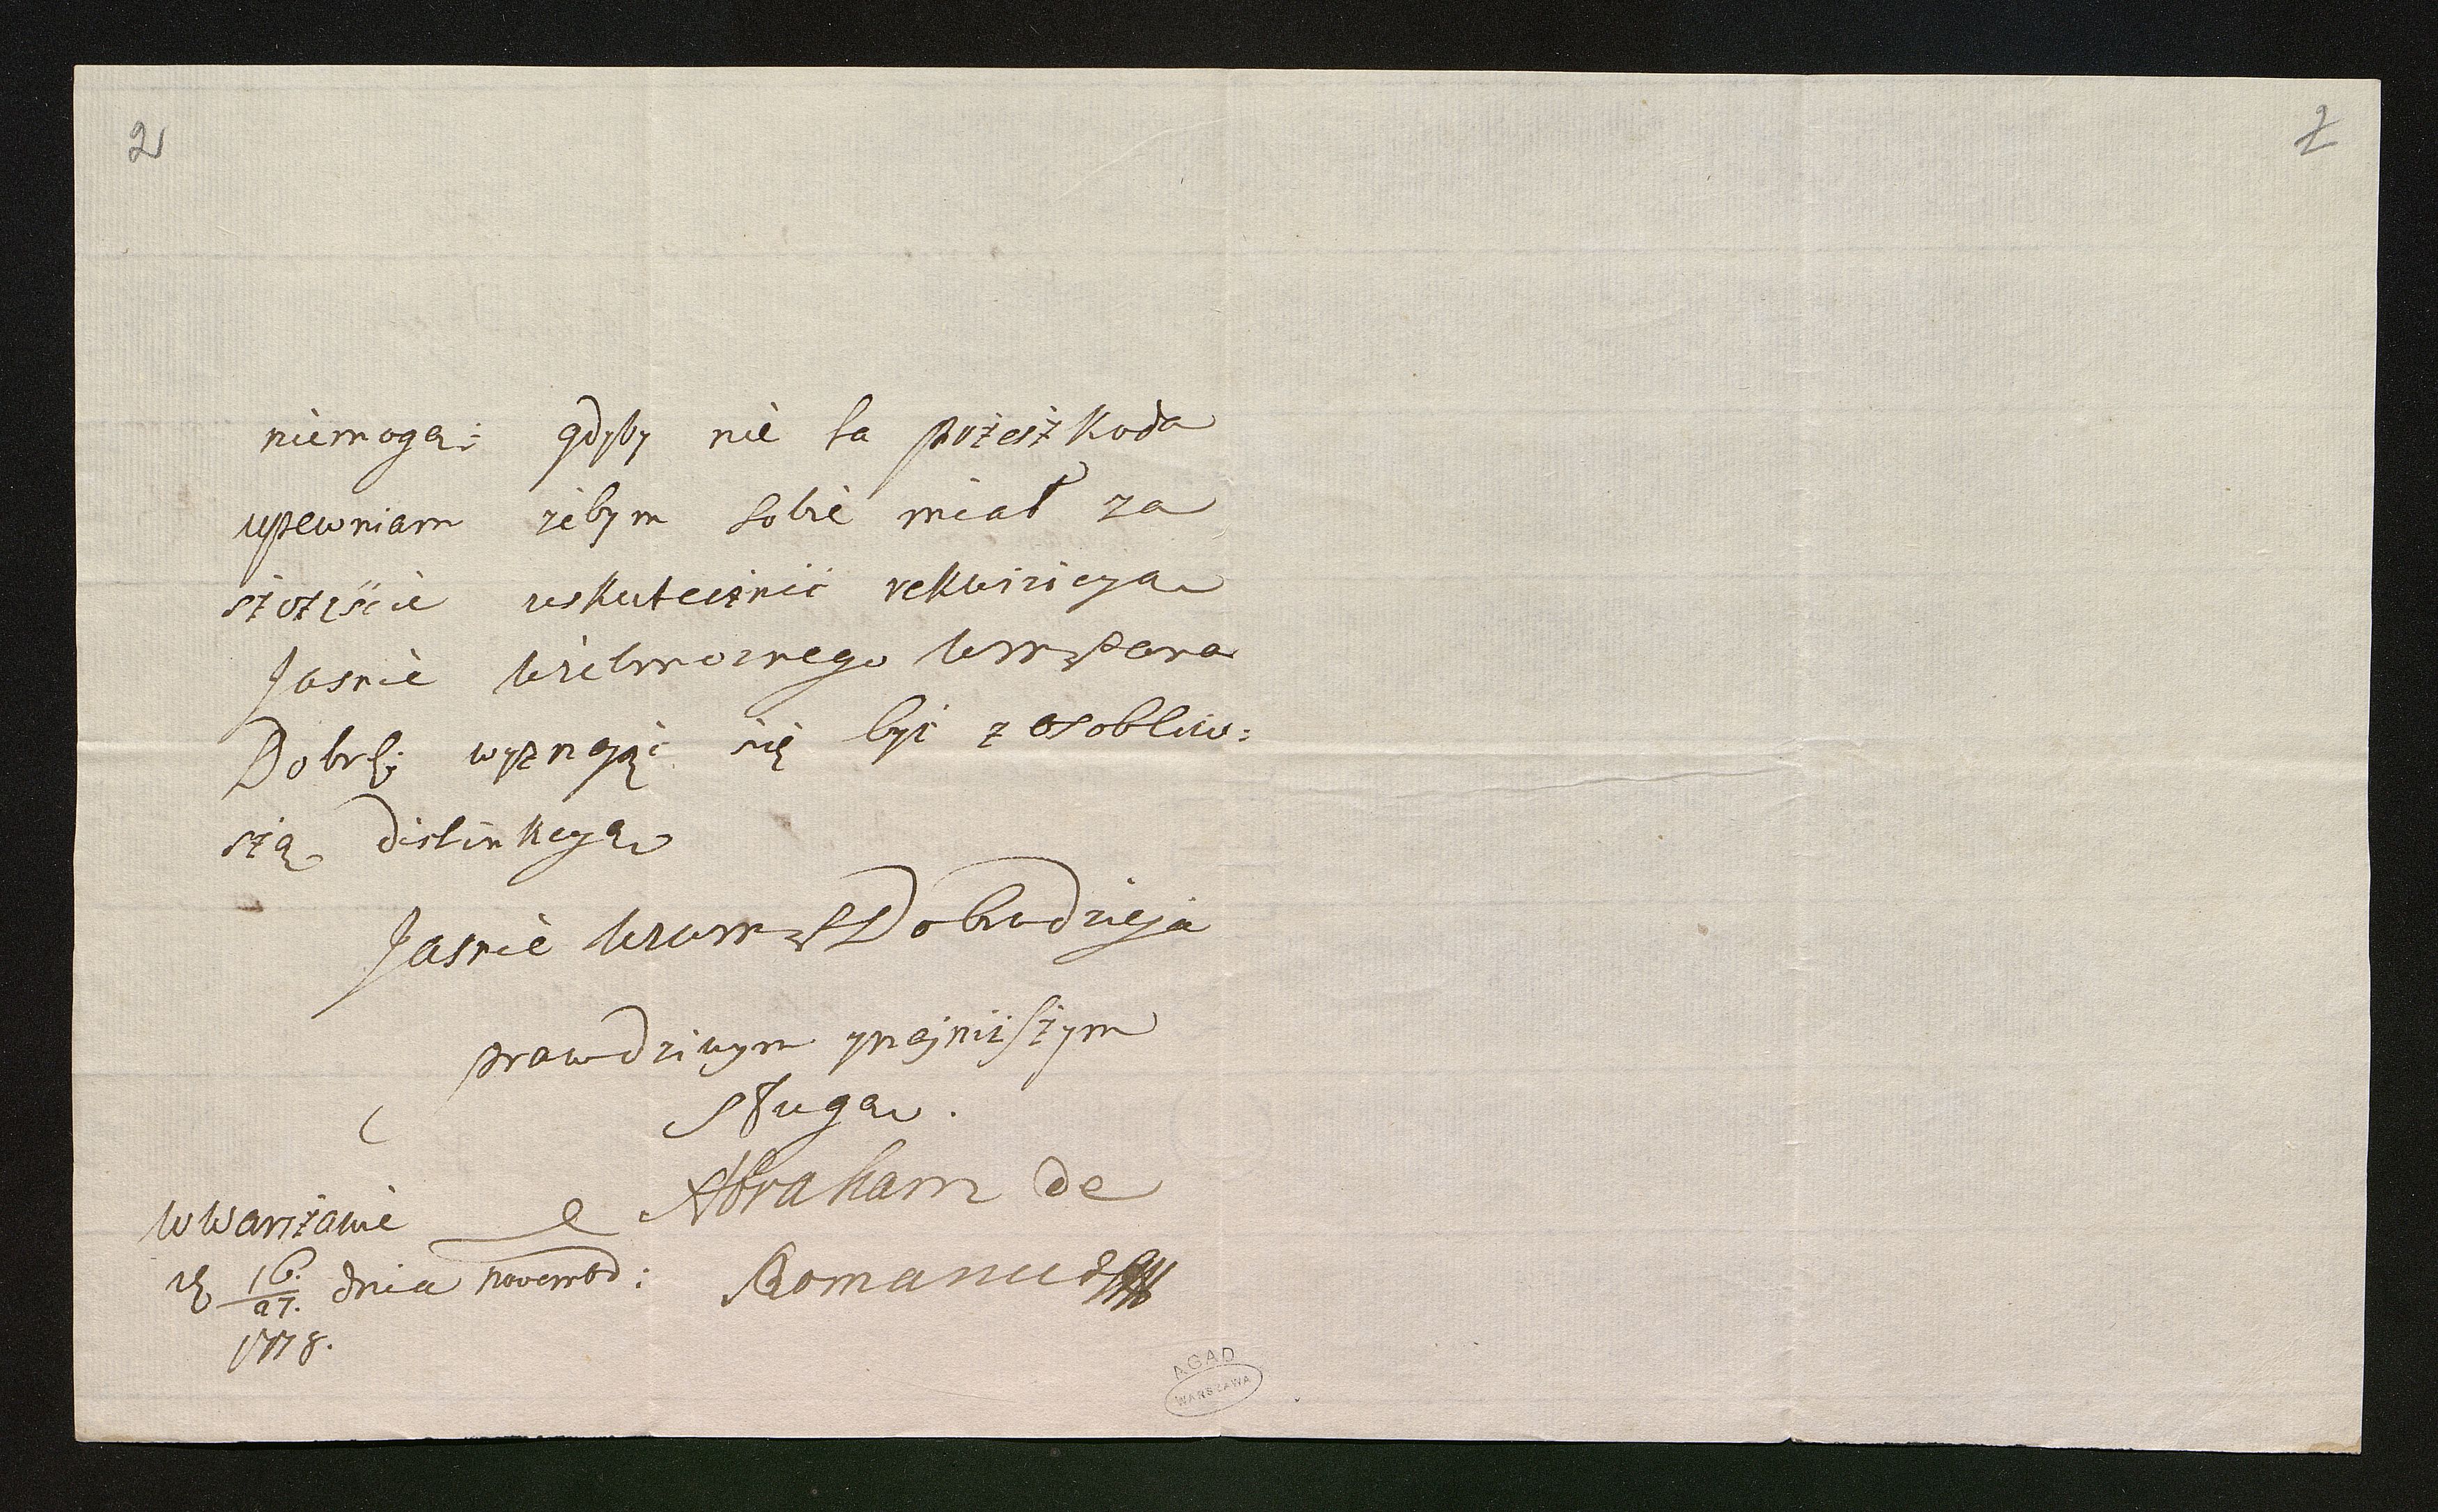 2
2
niemogą: gdyby nie ta przeszkoda
upewniam żebym sobie miał za
szczęście uskutecznić rekwizicyą
Jasnie Wielmoznego Wm Pana
Dobrf: wyznając się być z osobliw:
szą distinkcyą
Jasnie Wzwm Dobrodzieja
prawdziwym ynayniższym
sługą.
w Warszawie Abraham de
16./27. dnia novembr: Romanus
1778.
AGAD
WARSZAWA